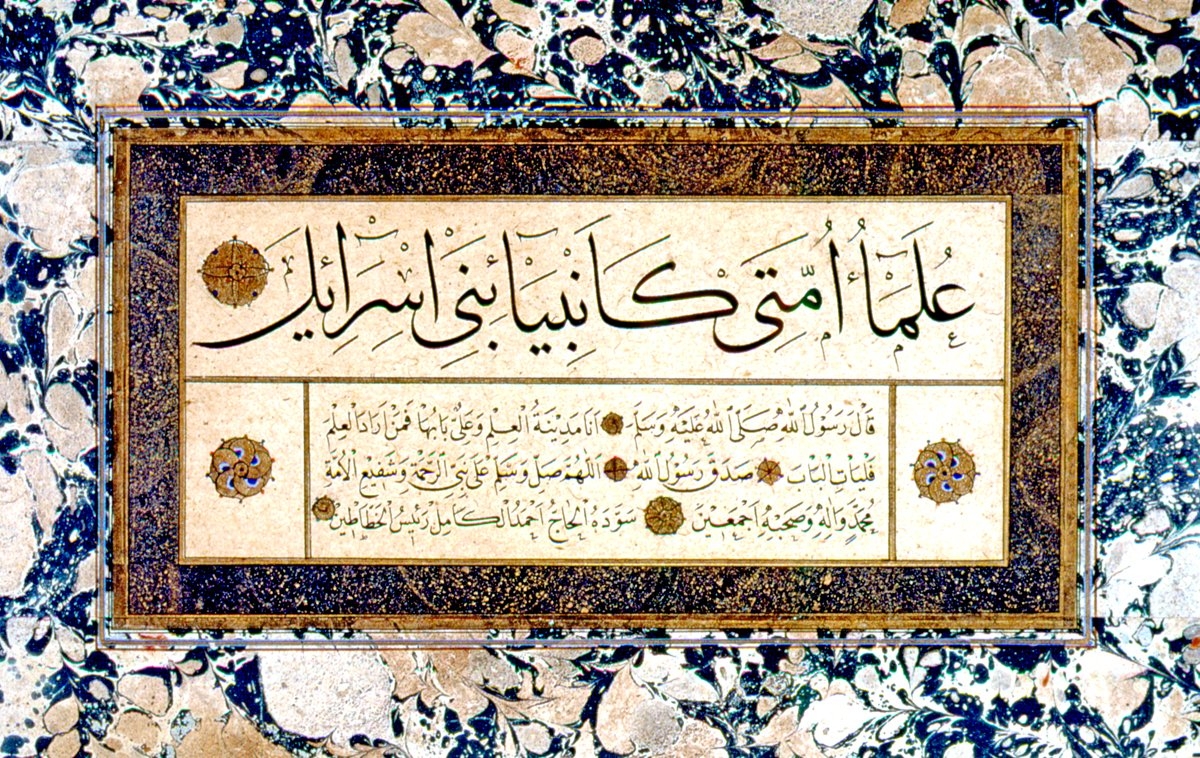 عُلَمَاۤءُ اُمَّتِى كَاَنْبِيَاۤءِ بَنِىۤ اِسْرَاۤئِلَ
قَالَ رَسُولُ اللّٰهِ صَلَّى اللّٰهُ عَلَيْهِ وَسَلَّمَ اَنَا مَدِينَةُ الْعِلْمِ وَعَلِىٌّ بَابُهَا فَمَنْ اَرَادَ الْعِلْمَ
فَلْيَاْتِ الْبَابَ صَدَقَ رَسُولُ اللّٰهِ اَللّٰهُمَّ صَلِّ وَسَلِّمْ عَلٰى نَبِىِّ الرَّحْمَةِ وَشَفِيعِ الْاُمَّةِ
مُحَمَّدٍ وَاٰلِهِ وَصَحْبِهِ اَجْمَعِينَ سَوَّدَهُ الْحَاجُّ اَحْمَدُ الْكَامِلُ رَئِيسُ الْخَطَّاطِينَ